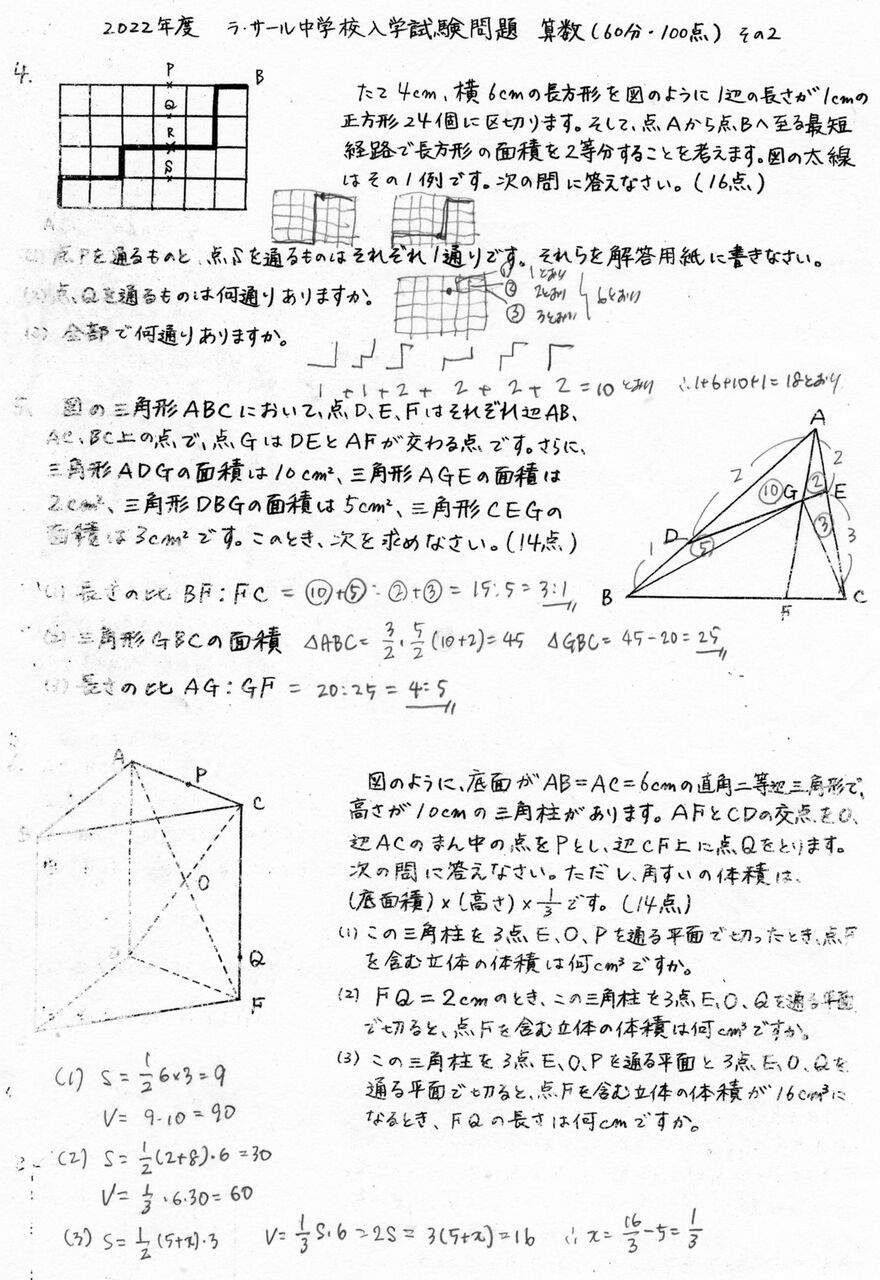 2022年度 ラ・サール中学校入学試験問題 算数(60分・100点) その2
4.
P
B
Q
R
S
A
たて4cm、横6cmの長方形を図のように1辺の長さが1cmの
正方形24個に区切ります。そして、点Aから点Bへ至る最短
経路で長方形の面積を2等分することを考えます。図の太線
はその1例です。次の問に答えなさい。(16点)
(1) 点Pを通るものと、点Sを通るものはそれぞれ1通りです。それらを解答用紙に書きなさい。
(2) 点Qを通るものは何通りありますか。
① 1とおり
② 2とおり
③ 3とおり
6とおり
(3) 全部で何通りありますか。
1 + 1 + 2 + 2 + 2 + 2 = 10とおり ∴1+6+10+1=18とおり
5. 図の三角形ABCにおいて、点D、E、Fはそれぞれ辺AB、
AC、BC上の点で、点GはDEとAFが交わる点です。さらに、
三角形ADGの面積は10cm²、三角形AGEの面積は
2cm²、三角形DBGの面積は5cm²、三角形CEGの
面積は3cm²です。このとき、次を求めなさい。(14点)
A
2
2
⑩
G
②
E
D
⑤
③
3
1
B
F
C
(1) 長さの比 BF:FC = ⑩+⑤:②+③ = 15:5 = 3:1
(2) 三角形GBCの面積 △ABC= 3/2・5/2(10+2)=45 △GBC= 45-20=25
(3) 長さの比 AG:GF = 20:25 = 4:5
A
P
C
B
O
D
Q
F
図のように、底面がAB=AC=6cmの直角二等辺三角形で、
高さが10cmの三角柱があります。AFとCDの交点をO、
辺ACのまん中の点をPとし、辺CF上に点Qをとります。
次の問に答えなさい。ただし、角すいの体積は、
(底面積)×(高さ)×1/3です。(14点)
(1) この三角柱を3点E、O、Pを通る平面で切ったとき、点F
を含む立体の体積は何cm³ですか。
(2) FQ=2cmのとき、この三角柱を3点E、O、Qを通る平面
で切ると、点Fを含む立体の体積は何cm³ですか。
(3) この三角柱を3点E、O、Pを通る平面と3点E、O、Qを
通る平面で切ると、点Fを含む立体の体積が16cm³に
なるとき、FQの長さは何cmですか。
(1) S = 1/2 6×3 = 9
V = 9・10 = 90
(2) S = 1/2(2+8)・6 = 30
V = 1/3・6・30 = 60
(3) S = 1/2(5+x)・3 V = 1/3 S・6 = 2S = 3(5+x) = 16 ∴ x = 16/3 - 5 = 1/3